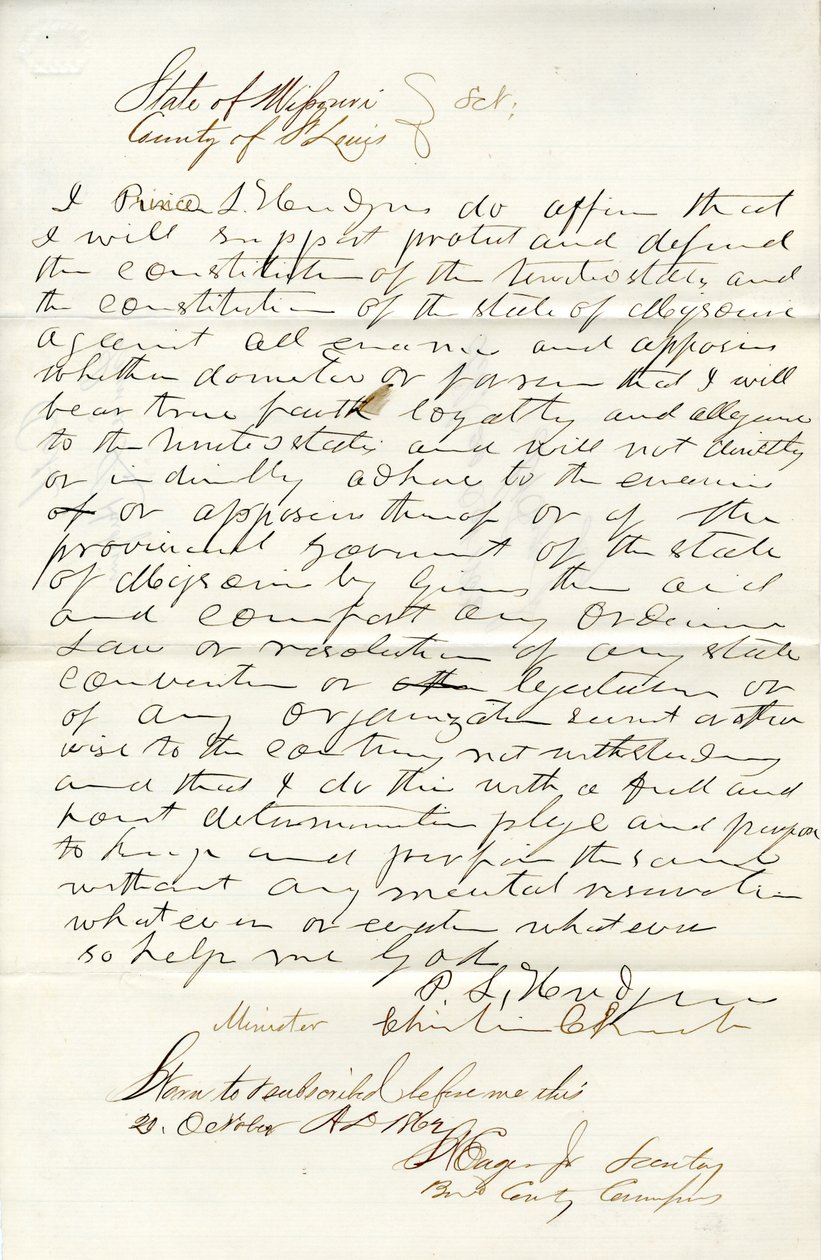 State of Missouri } Sct;
County of St Louis
I Prince L. Hudgins do affirm that
I will support protect and defend
the constitution of the United states and
the constitution of the state of Missouri
against all enemies and opposers
whether domestic or foreign that I will
bear true faith loyalty and allegiance
to the United states and will not directly
or indirectly adhere to the enemies
of or opposers thereof or of the
provisional Government of the state
of Missouri by giving them aid
and comfort any Ordinance
Law or resolution of any state
convention or legislature or
of any organization secret or other
wise to the contrary not withstanding
and that I do this with a full and
honest determination pledge and purpose
to keep and perform the same
without any mental reservation
whatever or evasion whatever
so help me God
P. L. Hudgins
Minister Christian Church
Sworn to & subscribed before me this
20. October AD 1862
Eager Jr Secretary
County